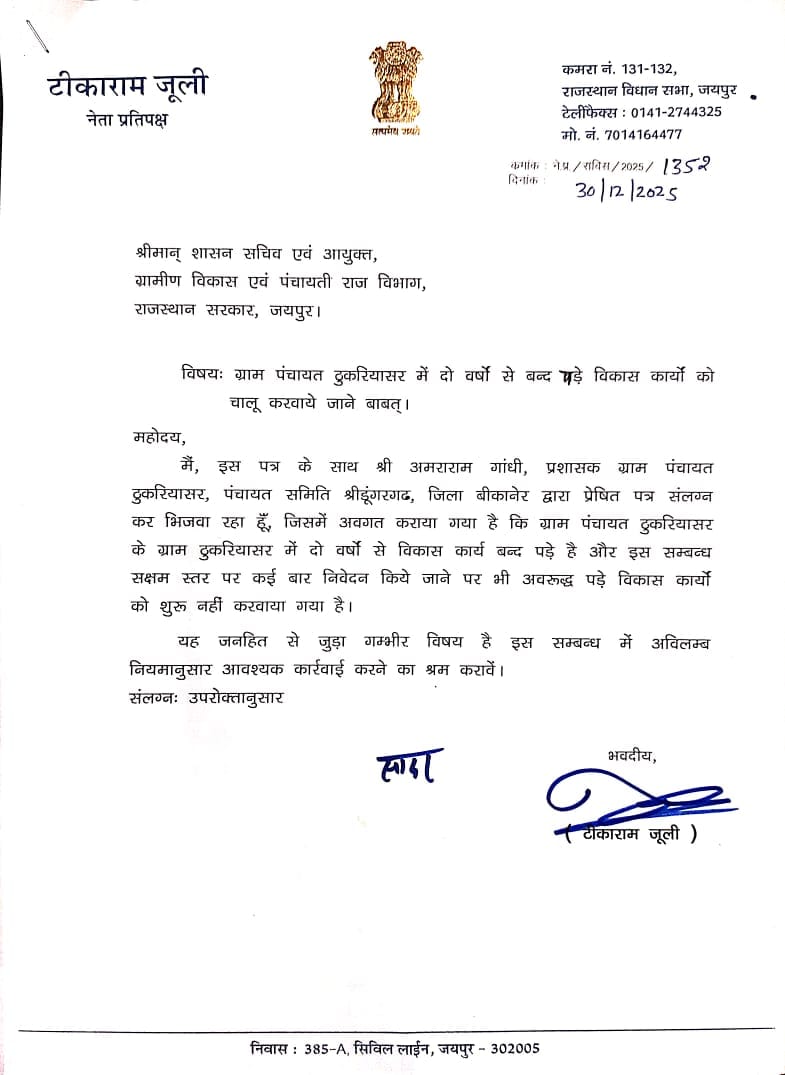 टीकाराम जूली
नेता प्रतिपक्ष
सत्यमेव जयते
कमरा नं. 131-132,
राजस्थान विधान सभा, जयपुर
टेलीफैक्स : 0141-2744325
मो. नं. 7014164477
क्रमांक : ने.प्र./राविस/2025/ 1352
दिनांक : 30/12/2025
श्रीमान् शासन सचिव एवं आयुक्त,
ग्रामीण विकास एवं पंचायती राज विभाग,
राजस्थान सरकार, जयपुर।
विषयः ग्राम पंचायत ठुकरियासर में दो वर्षो से बन्द पड़े विकास कार्यो को
चालू करवाये जाने बाबत्।
महोदय,
मैं, इस पत्र के साथ श्री अमराराम गांधी, प्रशासक ग्राम पंचायत
ठुकरियासर, पंचायत समिति श्रीडूंगरगढ, जिला बीकानेर द्वारा प्रेषित पत्र संलग्न
कर भिजवा रहा हूँ, जिसमें अवगत कराया गया है कि ग्राम पंचायत ठुकरियासर
के ग्राम ठुकरियासर में दो वर्षो से विकास कार्य बन्द पड़े है और इस सम्बन्ध
सक्षम स्तर पर कई बार निवेदन किये जाने पर भी अवरूद्ध पड़े विकास कार्यो
को शुरू नहीं करवाया गया है।
यह जनहित से जुड़ा गम्भीर विषय है इस सम्बन्ध में अविलम्ब
नियमानुसार आवश्यक कार्रवाई करने का श्रम करावें।
संलग्नः उपरोक्तानुसार
सादर
भवदीय,
( टीकाराम जूली )
निवास : 385-A, सिविल लाईन, जयपुर - 302005